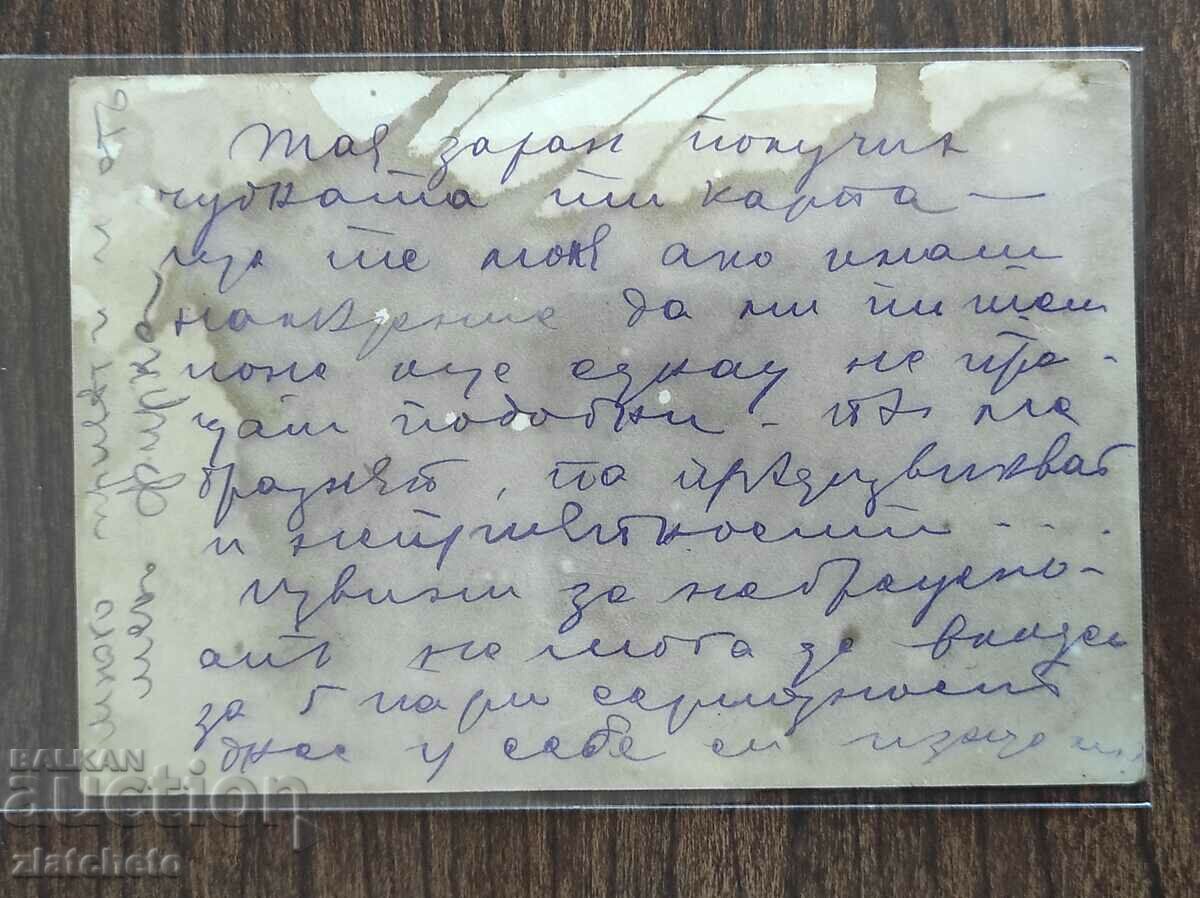 Тая заран получих
чудната ти карта —
ще те моля ако имаш
намерение да ми пишеш
поне още еднаж не пра-
щай подобни - тѣ ме
дразнят, та предизвикват
и неприятности ....
Извини за набращено-
ать не мога да видя
за 5 пари сериозност
днес у себе си
много привѣти и отъ
менъ Фирка
BALKAN
auction
zlatcheto